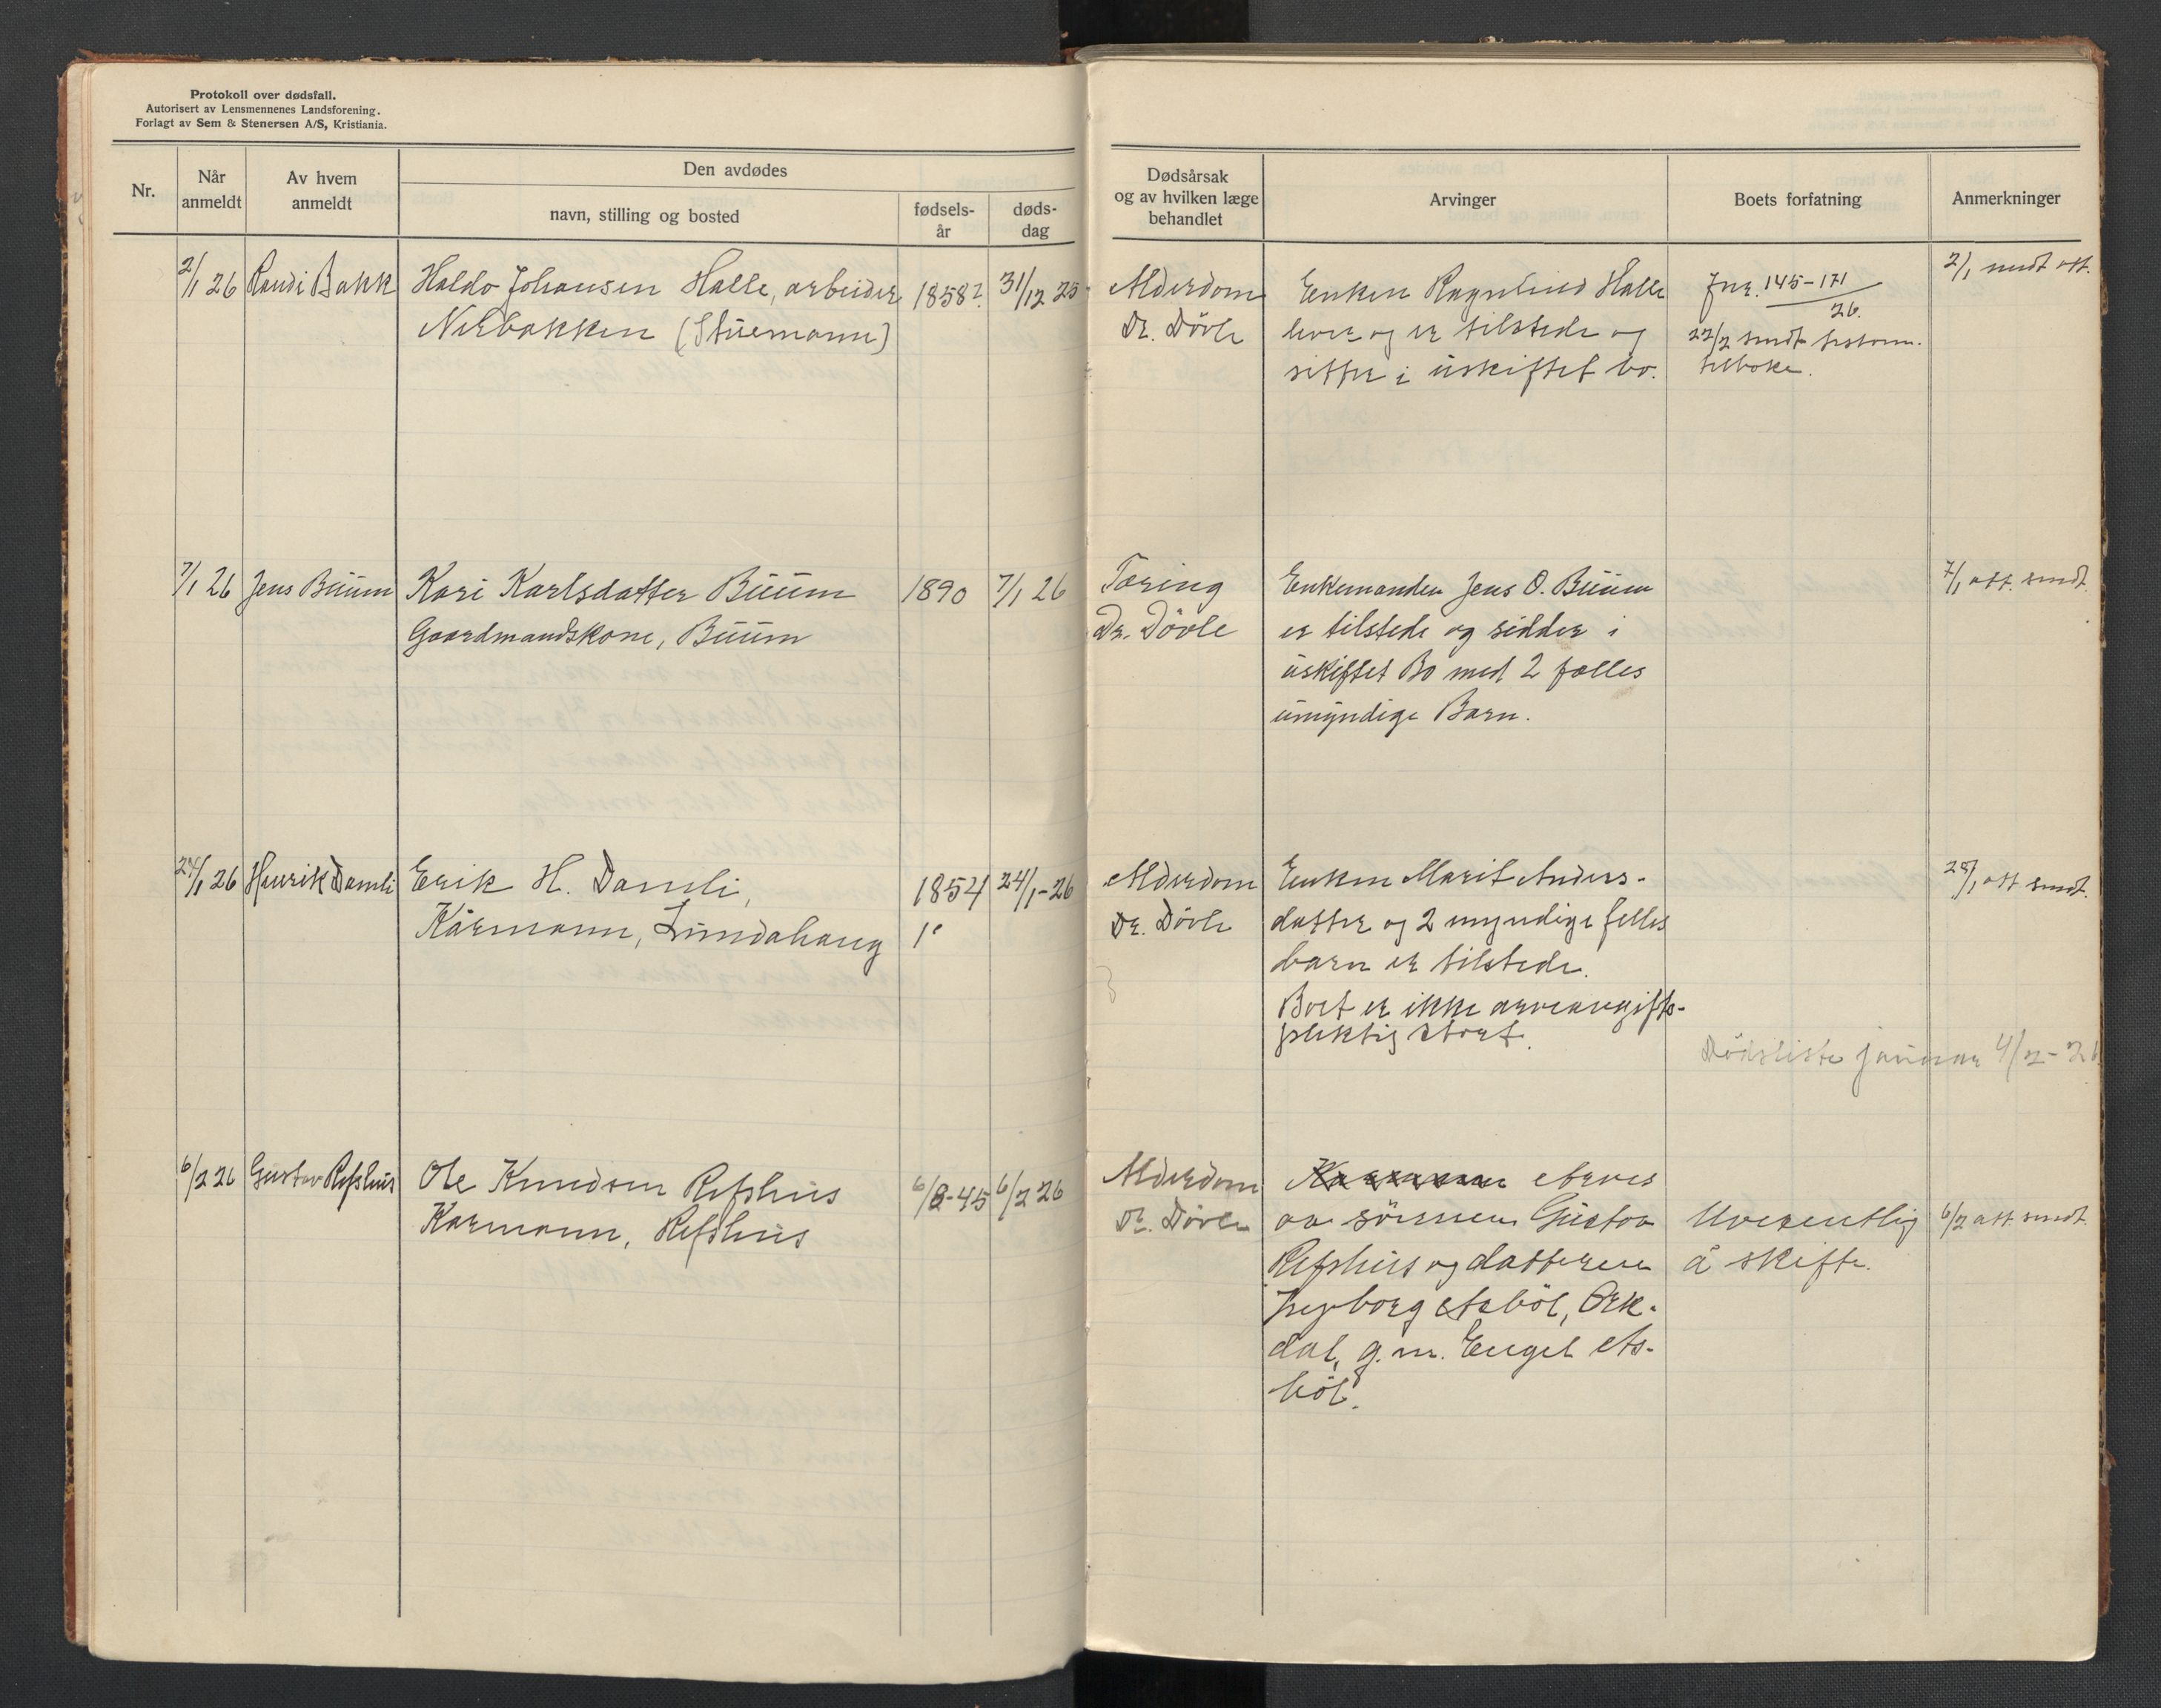 Protokoll over dødsfall.
Autorisert av Lensmennenes Landsforening.
Forlagt av Sem & Stenersen A/S, Kristiania.
Nr.
Når anmeldt
Av hvem anmeldt
Den avdødes
navn, stilling og bosted
fødsels-år
døds-dag
Dødsårsak og av hvilken læge behandlet
Arvinger
Boets forfatning
Anmerkninger
2/1 26 Randi Bakk Haldo Johansen Halle, arbeider 1858? 31/12 25
Nerbakken (Stuemann)
Alderdom
Dr. Dövle
Enken Ragnhild Halle
lever og er tilstede og
sitter i uskiftet bo.
Jnr. 145-171
26.
22/2 sendt testam.
tilbake.
2/1 sendt att.
7/1 26 Jens Büüm Kari Karlsdatter Büüm 1890 7/1 26
Gaardmandskone, Büüm
Tæring
Dr. Dövle
Enkemanden Jens O. Büüm
er tilstede og sidder i
uskiftet Bo med 2 fælles
umyndige Barn.
7/1 att. sendt.
24/1 26 Henrik Damli Erik H. Damli, 1854 24/1-26
Kårmann, Lundahaug
Alderdom
Dr. Dövle
Enken Marit Anders-
datter og 2 myndige felles
barn er tilstede.
Boet er ikke arveavgifts-
pliktig stort.
25/1 att sendt.
Dödsliste januar 4/2-26
6/2 26 Gustav Refshus Ole Knudsen Refshus 6/8-45 6/2 26
Karmann, Refshus
Alderdom
Dr. Dövle
Arves
av sönnen Gustav
Refshus og datteren
Ingborg Asböl, Ork-
dal, g.m. Engel As-
böl.
Uvesentlig
å skifte.
6/2 att. sendt.